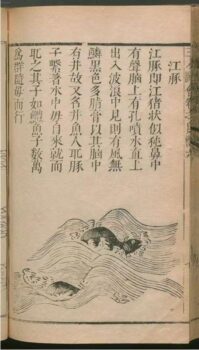 江豚
江豚即江猪狀似豘鼻中
有聲腦上有孔噴水直上
出入波浪中見則有風無
鱗黑色多脂膏以其腦中
有井故又名井魚人取豚
子繫着水中母自來就而
取之其子如鱧魚子數萬
為群隨母而行